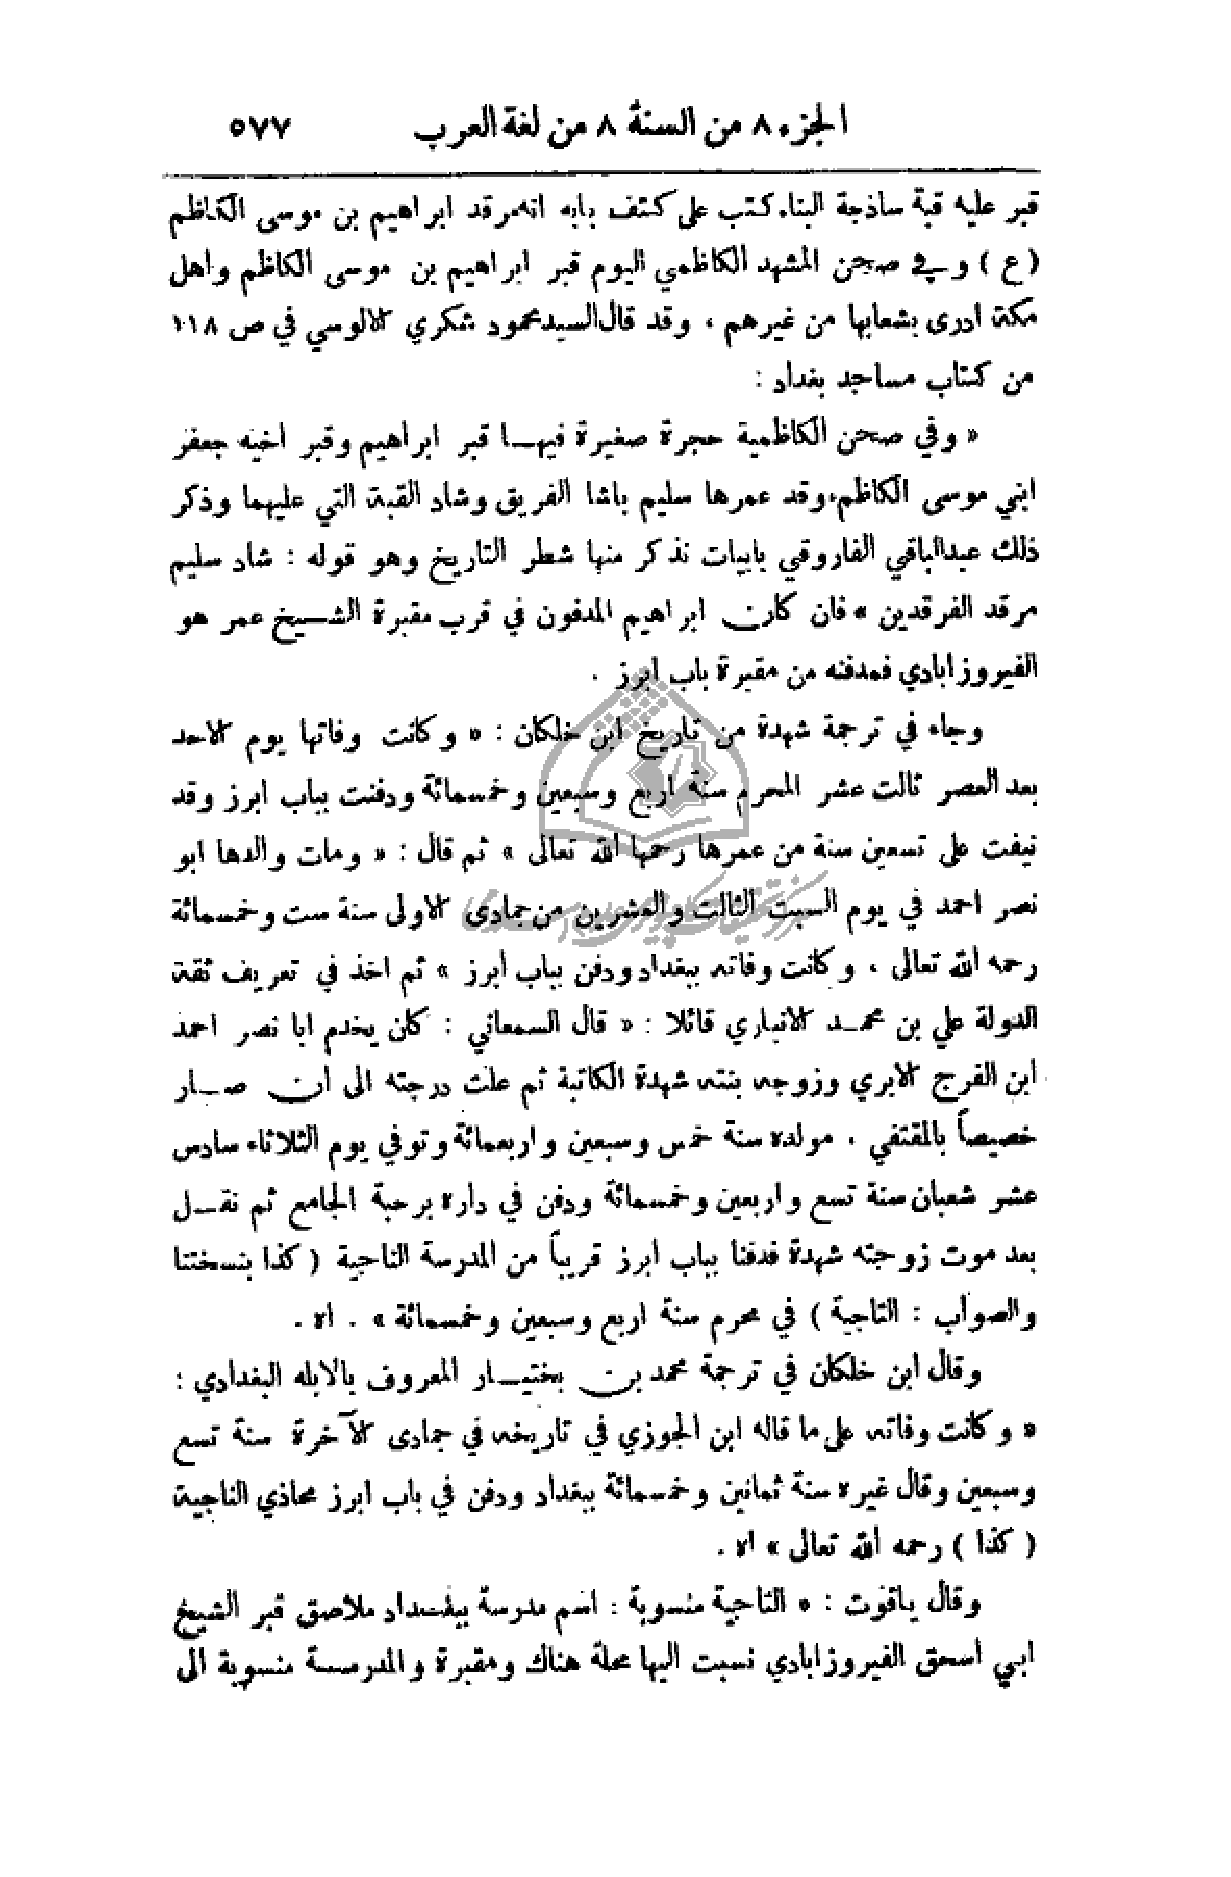 الجزء ٨ من السنة ٨ من لغة العرب ٥٧٧
قبر عليه قبة ساذجة البناء. كتب على كتف بابه انه مرقد ابراهيم بن موسى الكاظم
( ع ) وفي صحن المشهد الكاظمي اليوم قبر ابراهيم بن موسى الكاظم واهل
مكة ادرى بشعابها من غيرهم ، وقد قال السيد محمود شكري الالوسي في ص ١١٨
من كتاب مساجد بغداد :
« وفي صحن الكاظمية حجرة صغيرة فيهـا قبر ابراهيم وقبر اخيه جعفر
ابني موسى الكاظم، وقد عمرها سليم باشا الفريق وشاد القبة التي عليهما وذكر
ذلك عبدالباقي الفاروقي بابيات نذكر منها شطر التاريخ وهو قوله : شاد سليم
مرقد الفرقدين » فان كان ابراهيم المدفون في قرب مقبرة الشـيخ عمر هو
الفيروزابادي فمدفنه من مقبرة باب ابرز .
وجاء في ترجمة شهدة من تاريخ ابن خلكان : « وكانت وفاتها يوم الاحد
بعد العصر ثالث عشر المحرم سنة اربع وسبعين وخمسمائة ودفنت بباب ابرز وقد
نيفت على تسعين سنة من عمرها رحمها الله تعالى » ثم قال : « ومات والدها ابو
نصر احمد في يوم السبت الثالث والعشرين من جمادى الاولى سنة ست وخمسمائة
رحمه الله تعالى ، وكانت وفاته ببغداد ودفن بباب أبرز » ثم اخذ في تعريف ثقة
الدولة علي بن محمـد الانباري قائلا : « قال السمعاني : كان يخدم ابا نصر احمد
ابن الفرج الابري وزوجه بنته شهدة الكاتبة ثم علت درجته الى أن صـار
خصيصاً بالمقتفي . مولده سنة خمس وسبعين واربعمائة وتوفي يوم الثلاثاء سادس
عشر شعبان سنة تسع واربعين وخمسمائة ودفن في داره برحبة الجامع ثم نقـل
بعد موت زوجته شهدة فدفنا بباب أبرز قريباً من المدرسة الناجية ( كذا بنسختنا
والصواب : التاجية ) في محرم سنة اربع وسبعين وخمسمائة » . اه .
وقال ابن خلكان في ترجمة محمد بن بختيـار المعروف بالابله البغدادي :
« وكانت وفاته على ما قاله ابن الجوزي في تاريخه في جمادى الآخرة سنة تسع
وسبعين وقال غيره سنة ثمانين وخمسمائة ببغداد ودفن في باب ابرز محاذي الناجية
( كذا ) رحمه الله تعالى » اه .
وقال ياقوت : « التاجية منسوبة : اسم مدرسة ببغـداد ملاصق قبر الشيخ
ابي اسحق الفيروزابادي نسبت اليها محلة هناك ومقبرة والمدرسة منسوبة الى